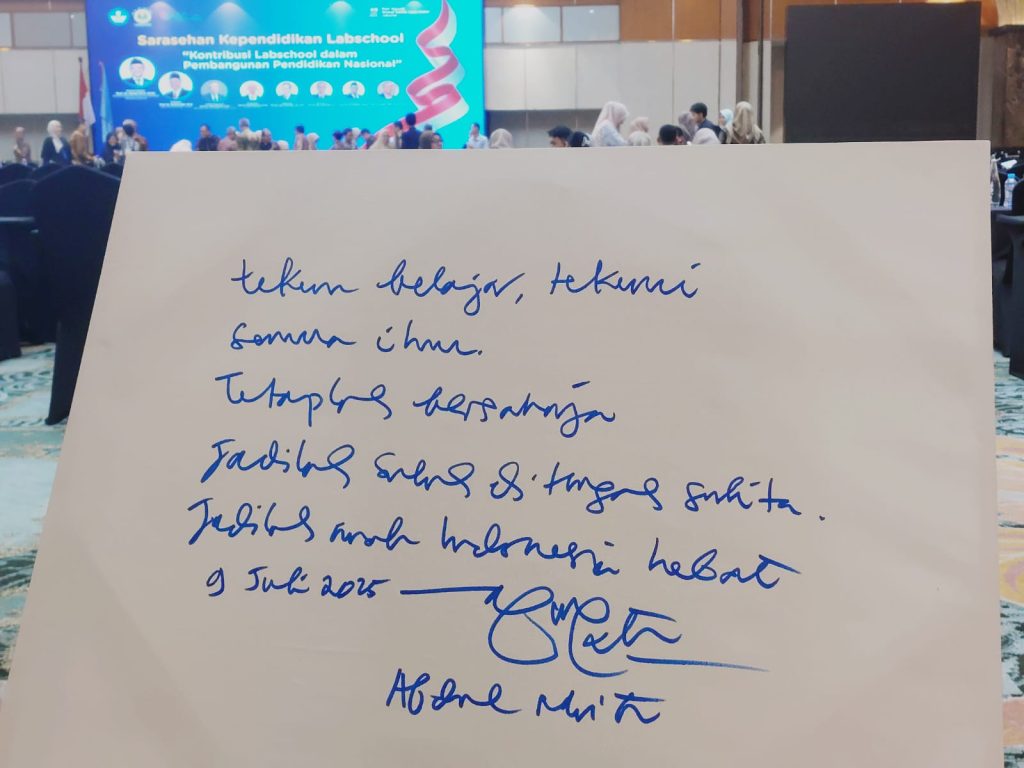 Sarasehan Kependidikan Labschool
"Kontribusi Labschool dalam
Pembangunan Pendidikan Nasional"
tekun belajar, tekuni
semua ilmu.
Tetaplah bersahaja
Jadilah di tengah
Jadilah anak Indonesia hebat
9 Juli 2025
Abdul Mu'ti